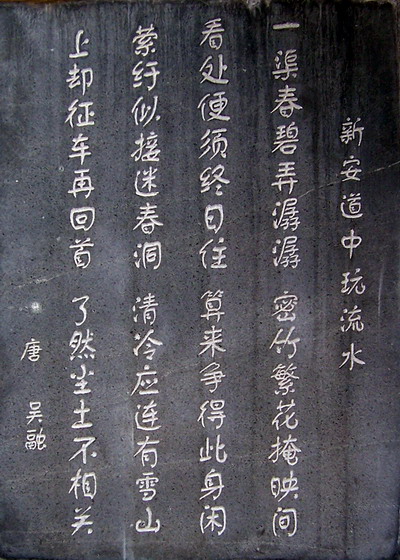 新安道中玩流水
一渠春碧弄潺潺 密竹繁花掩映间
看处便须终日住 算来争得此身闲
萦纡似接迷春洞 清冷应连有雪山
上却征车再回首 了然尘土不相关
唐 吴融